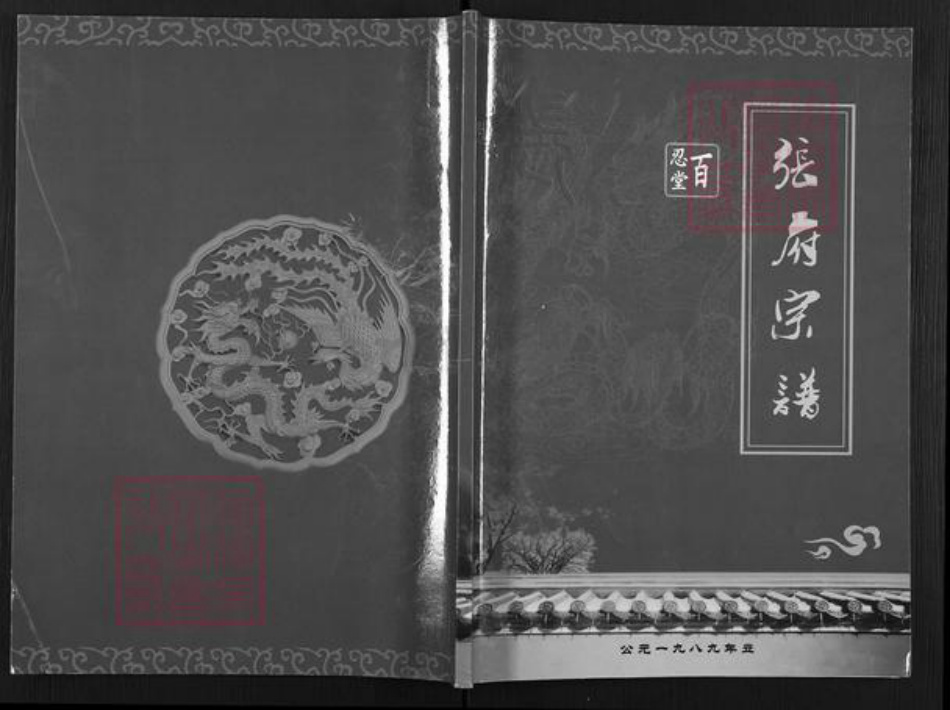 張府宗譜
百忍堂
公元一九八九年立